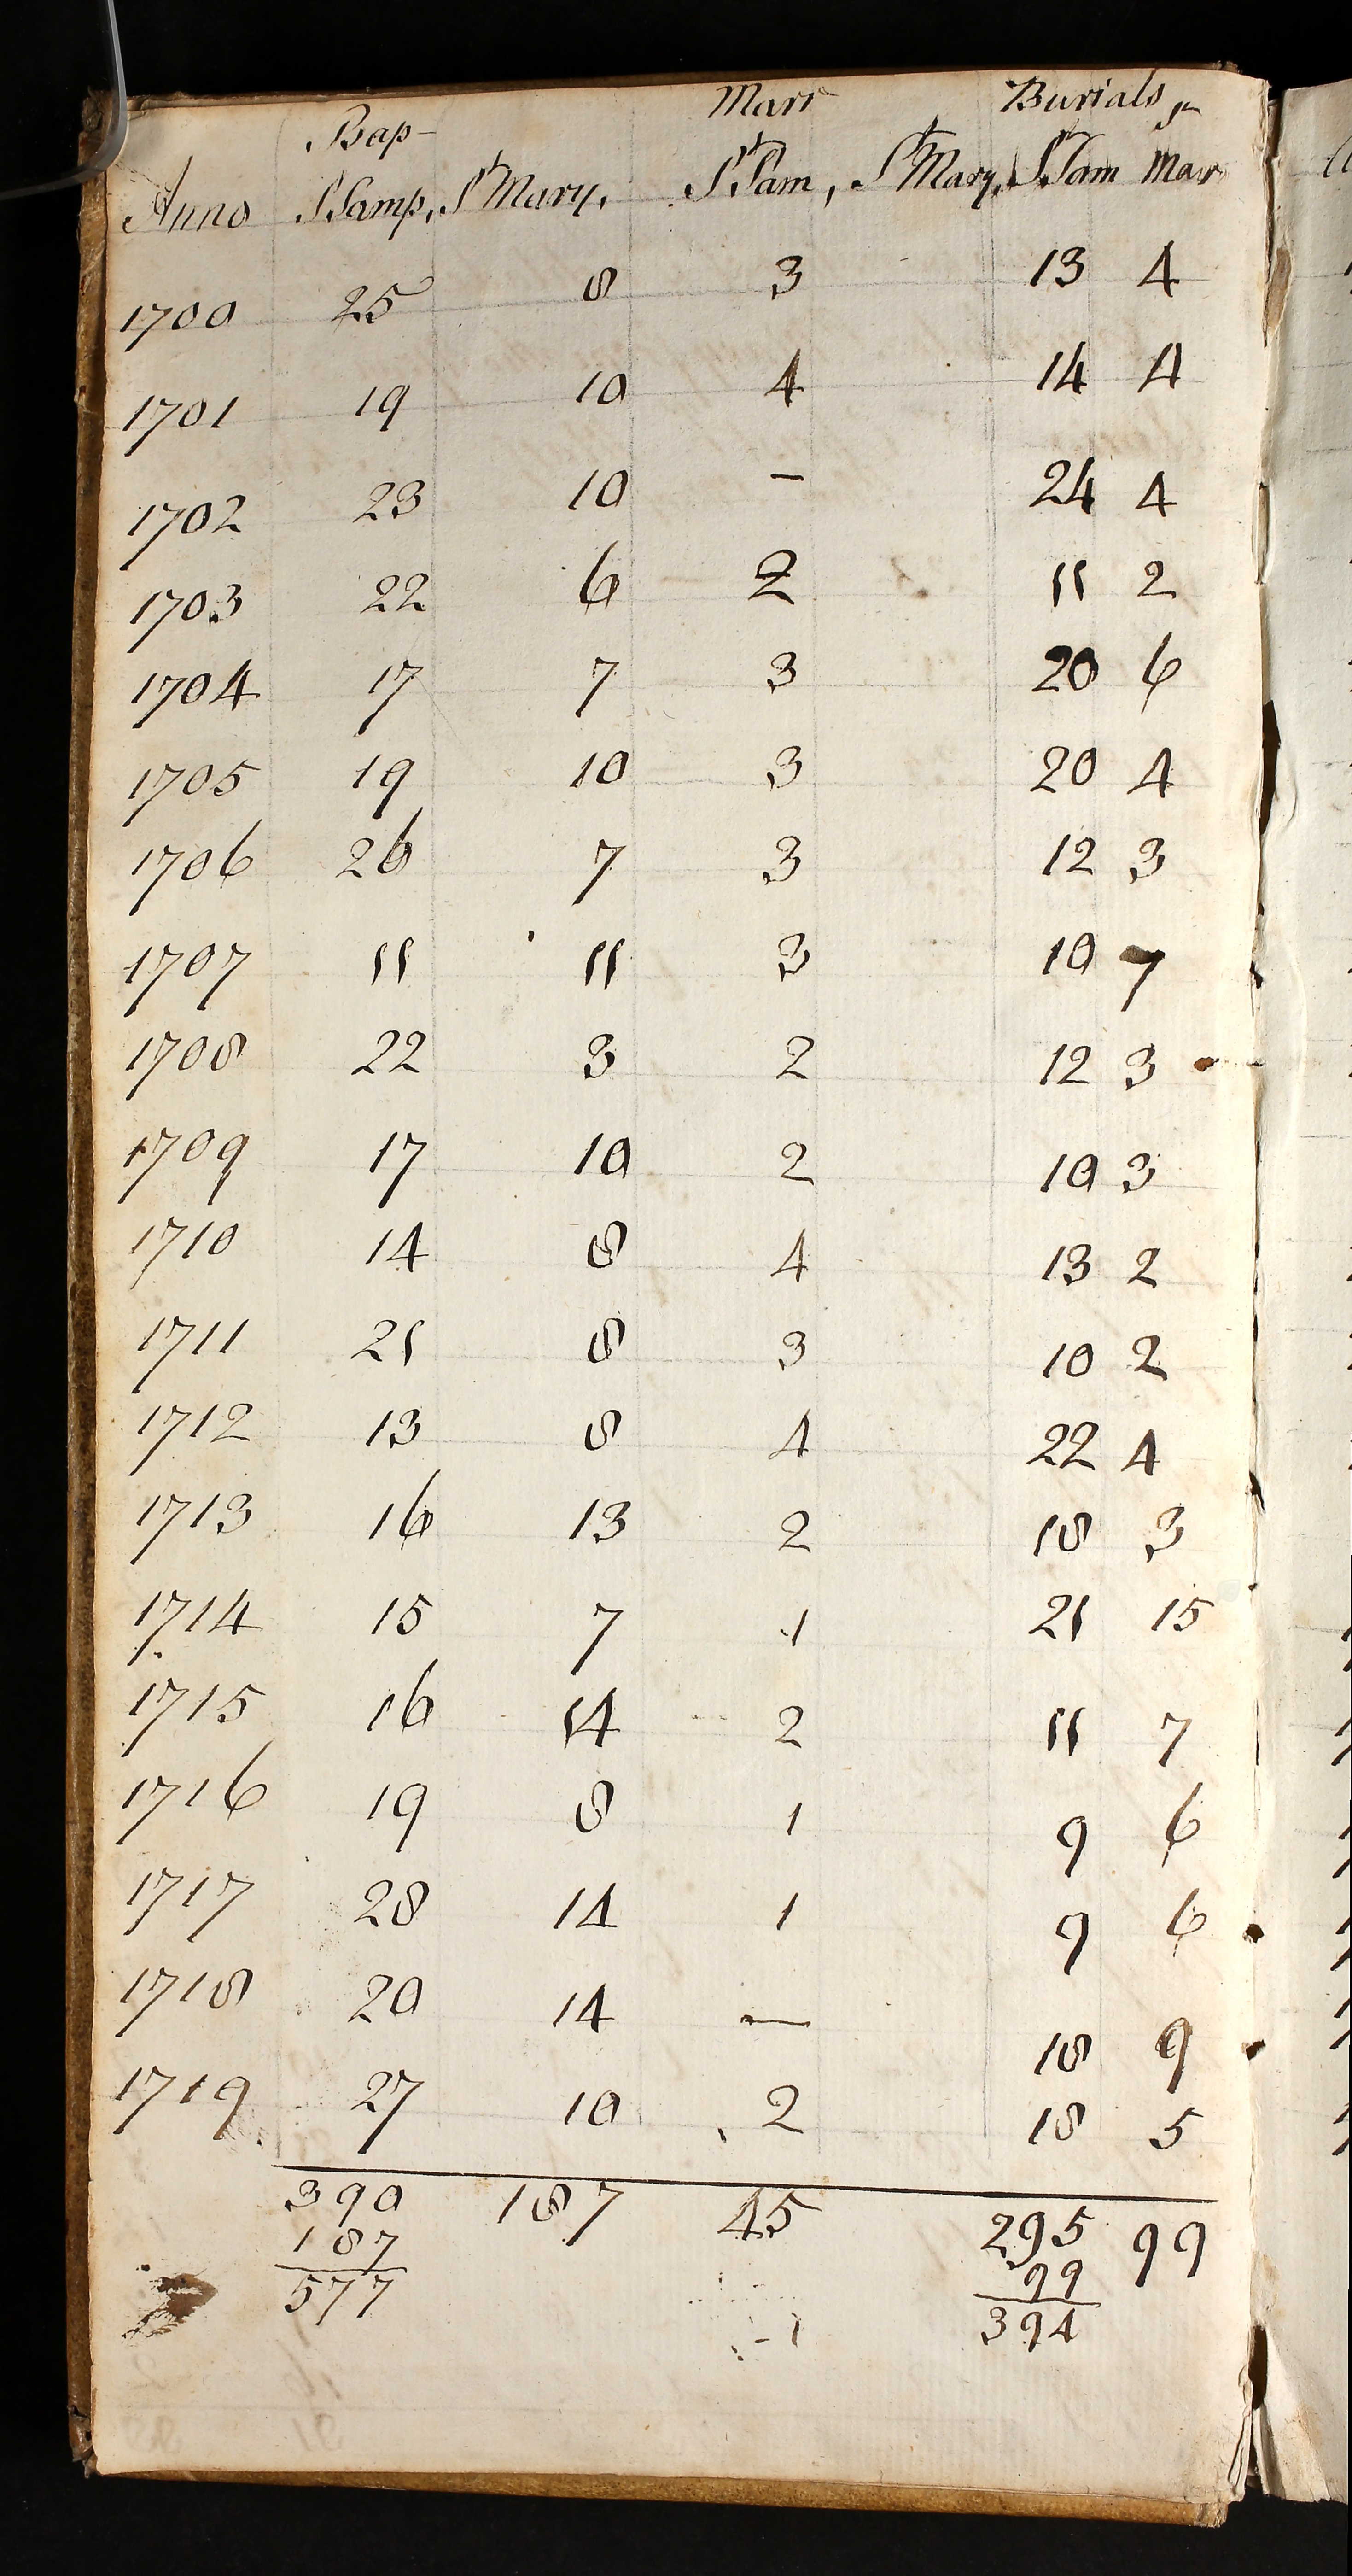 Bap Marr Burials
Anno St Samp, St Mary, St Sam, St Mary, St Sam Mar
1700 25 8 3 13 4
1701 19 10 4 14 4
1702 23 10 - 24 4
1703 22 6 2 11 2
1704 17 7 3 20 6
1705 19 10 3 20 4
1706 26 7 3 12 3
1707 11 11 3 10 7
1708 22 3 2 12 3
1709 17 10 2 10 3
1710 14 8 4 13 2
1711 21 8 3 10 2
1712 13 8 4 22 4
1713 16 13 2 18 3
1714 15 7 1 21 15
1715 16 14 2 11 7
1716 19 8 1 9 6
1717 28 14 1 9 6
1718 20 14 — 18 9
1719 27 10 2 18 5
390 187 45 295 99
187 99
577 394
-1